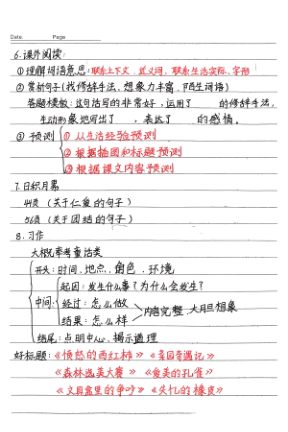 Date. Page
6.课外阅读:
①理解词语意思:联系上下文、近义词、联系生活实际、字形
②赏析句子(找修辞手法、想象力丰富、陌生词语)
答题模板:这句话写的非常好,运用了 的修辞手法,
生动形象地写出了 、表达了 的感情。
③预测 ①从生活经验预测
②根据插图和标题预测
③根据课文内容预测
7.日积月累
(关于仁爱的句子)
(关于团结的句子)
8.习作
开头:时间、地点、角色、环境
起因:发生什么事?为什么会发生?
中间: 经过:怎么做 内容完整、大胆想象
结果:怎么样
结尾:点明中心、揭示道理
好标题:《愤怒的西红柿》《菜园奇遇记》
《森林选美大赛》《爱美的孔雀》
《文具盒里的争吵》《失忆的橡皮》